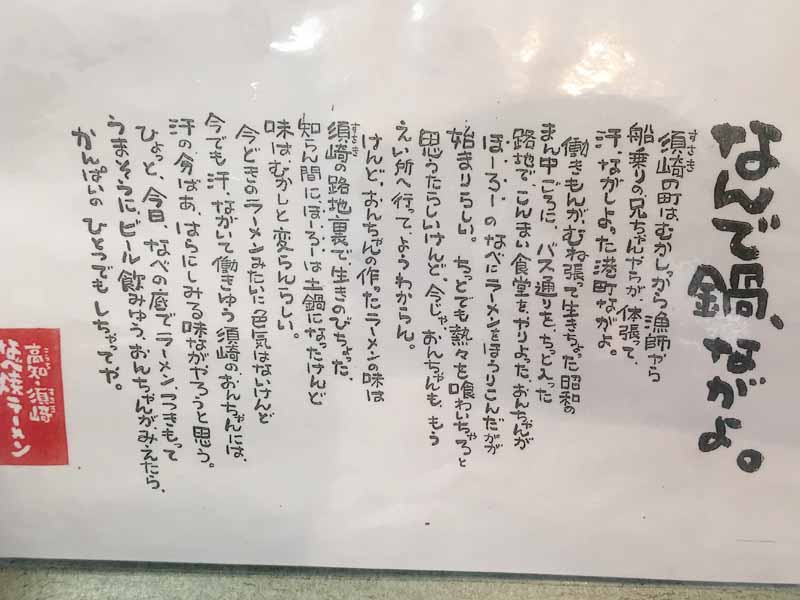 なんで鍋、ながよ。
須崎の町は、むかしっから漁師やら
すさき
船乗りの兄ちゃんやらが、体張って、
汗、ながしよった港町ながよ。
働きもんが、むね張って生きちゃった昭和の
まん中ごろに、バス通りを、ちっと入った
路地で、こんまい食堂を、やりよった、おんちゃんが
ほーろーのなべにラーメンをほうりこんだがが
始まりらしい。ちっとでも熱々を喰わいちゃろと
思うたらしいけんど、今じゃ、おんちゃんも、もう
えい所へ行って、ようわからん。
けんど、おんちゃんの作ったラーメンの味は
須崎の路地裏で生きのびちょった。
すさき
知らん間に、ほーろーは土鍋になったけんど
味は、むかしと変らんらしい。
今どきのラーメンみたいに色気はないけんど
今でも汗、ながいて働きゆう須崎のおんちゃんには、
汗の分ばあ、はらにしみる味ながやろうと思う。
ひょっと、今日、なべの底でラーメンつきもって
うまそうに、ビール飲みゆう、おんちゃんがみえたら、
かんぱいの ひとつでも しちゃってや。
高知・須崎
なべ焼ラーメン